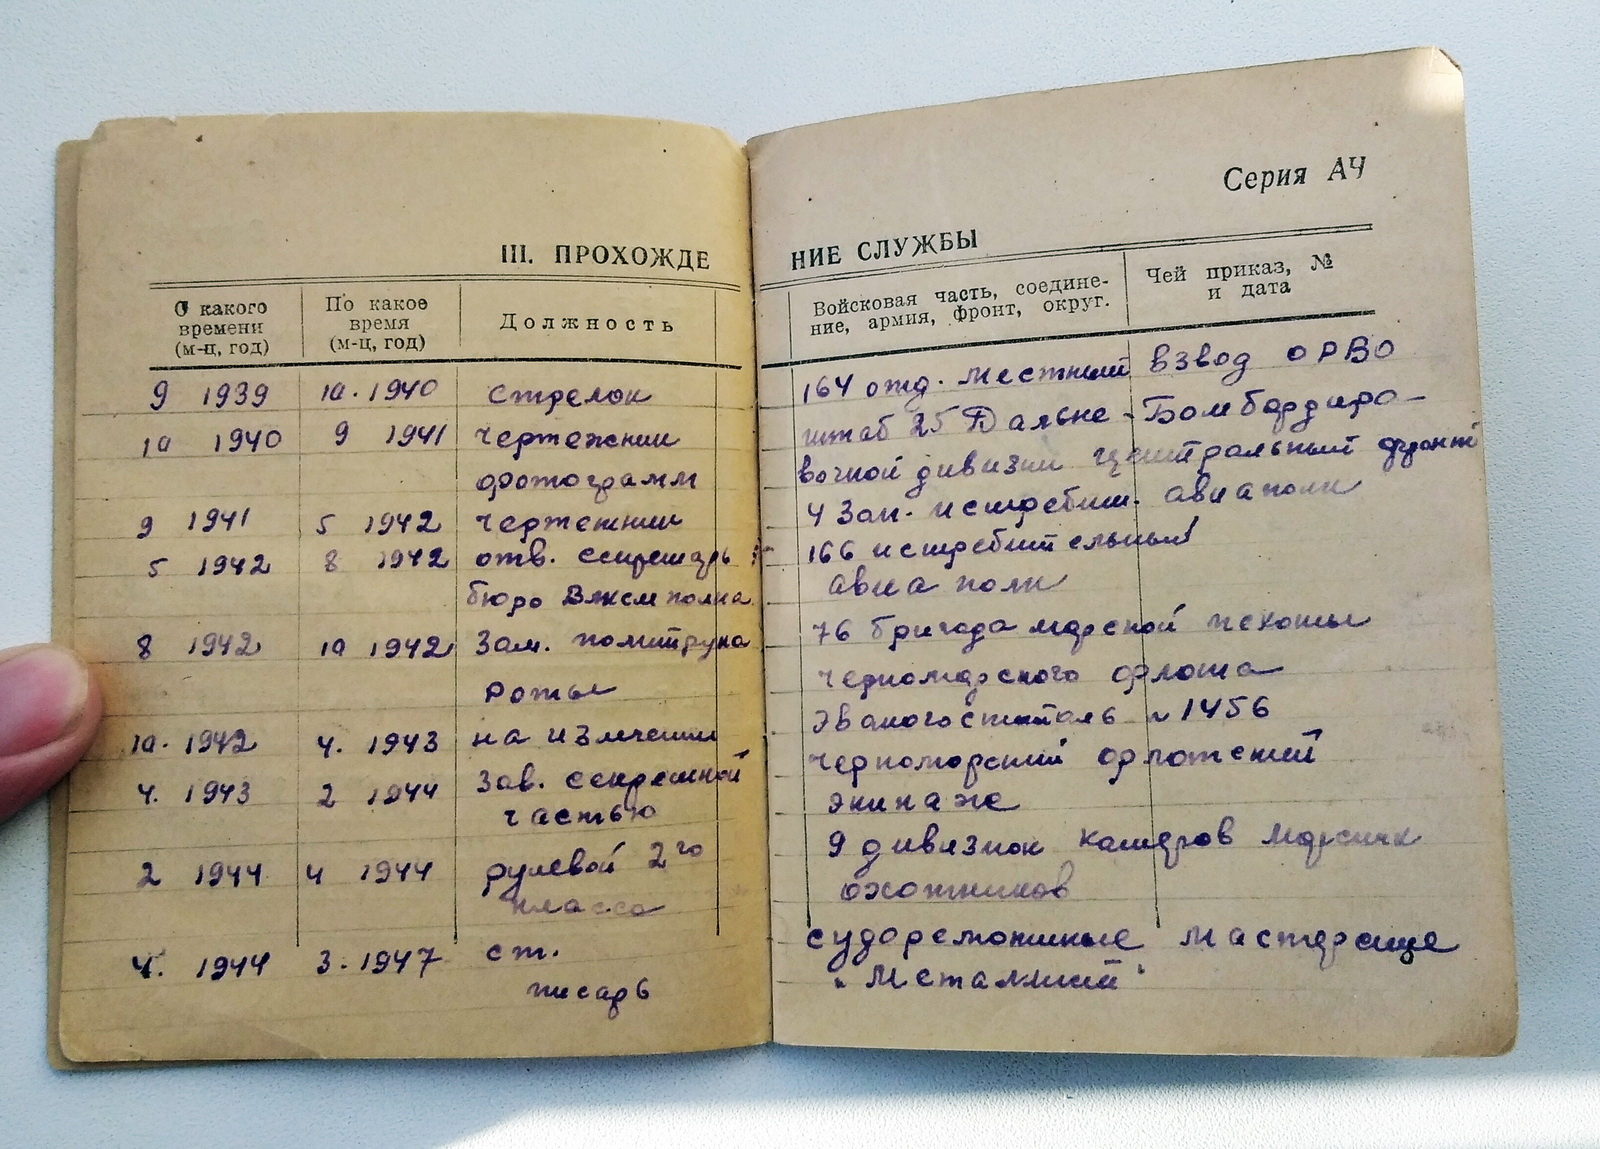 Серия АЧ
III. ПРОХОЖДЕНИЕ СЛУЖБЫ
С какого времени (м-ц, год)
По какое время (м-ц, год)
Должность
Войсковая часть, соедине-
ние, армия, фронт, округ.
Чей приказ, №
и дата
9 1939 10. 1940 стрелок 164 отд. местный взвод ОРВО
10 1940 9 1941 чертежник штаб 25 Дальне-Бомбардиро-
фотограмм вочной дивизии центральный фронт
9 1941 5 1942 чертежник 4 зап. истребит. авиаполк
5 1942 8 1942 отв. секретарь 166 истребительный
бюро Влксм полка авиа полк
8 1942 10 1942 зам. политрука 76 бригада морской пехоты
роты черноморского флота
10. 1942 4. 1943 на излечении Эвакогоспиталь № 1456
4. 1943 2 1944 зав. секретной черноморский флотский
частью экипаж
2 1944 4 1944 рулевой 2го 9 дивизион катеров морских
класса охотников
4. 1944 3. 1947 ст. судоремонтные мастерские
писарь "Металлист"